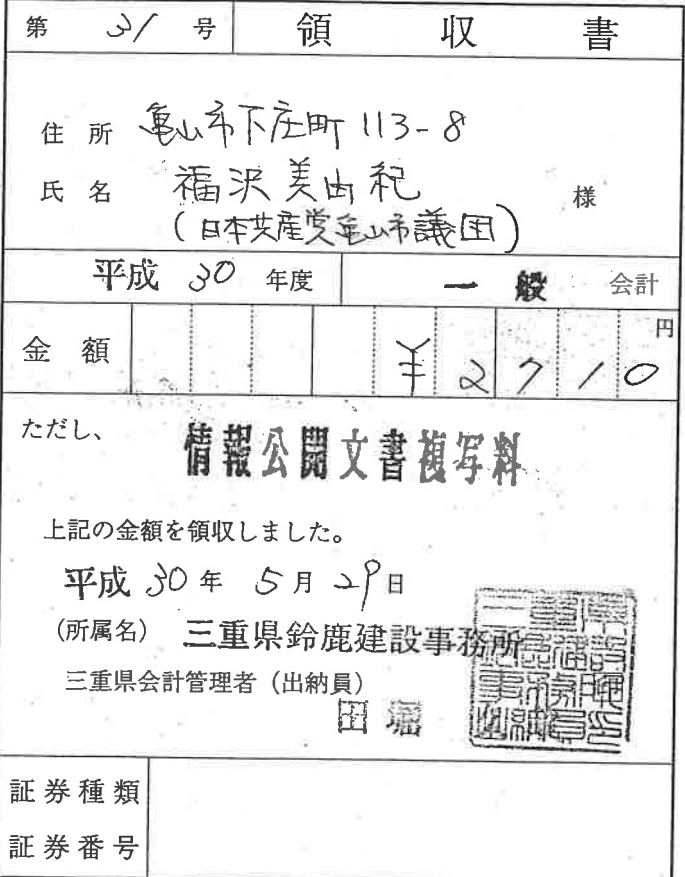 第 31 号 領収書
住所 亀山市下庄町113-8
氏名 福沢美由紀 様
(日本共産党亀山市議団)
平成 30 年度 一般 会計
金額 ¥2710 円
ただし、
情報公開文書複写料
上記の金額を領収しました。
平成 30 年 5 月 29 日
(所属名) 三重県鈴鹿建設事務所
三重県会計管理者(出納員)
田堀
証券種類
証券番号